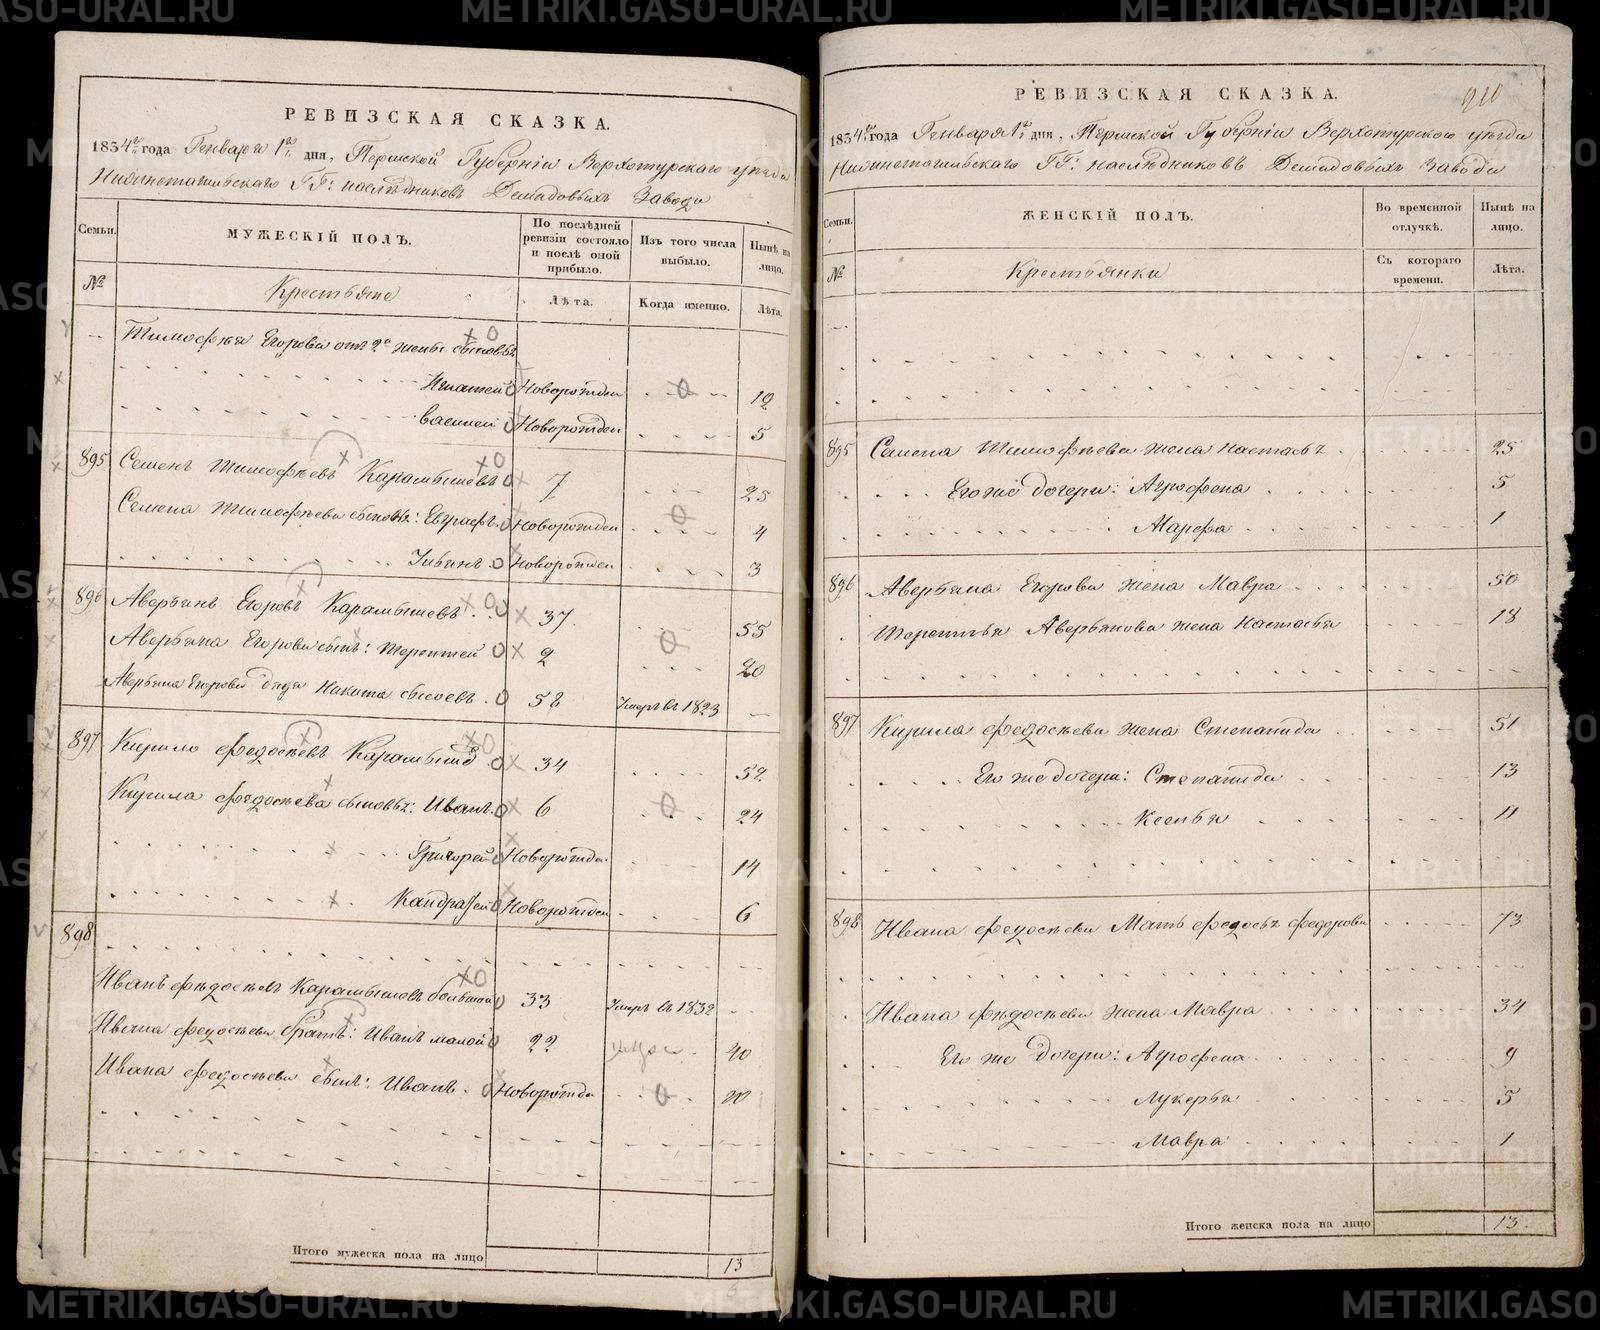 РЕВИЗСКАЯ СКАЗКА.
1834го года Генваря 1го дня, Пермской Губерніи Верхотурскаго уезда
Нижнетагильскаго ГГ: наслѣдниковъ Демидовыхъ Завода
Семьи.
МУЖЕСКІЙ ПОЛЪ.
По послѣдней ревизіи состояло и послѣ оной прибыло.
Изъ того числа выбыло.
Нынѣ на лицо.
№
Крестьяне
Лѣта.
Когда именно.
Лѣта.
Тимофея Егорова отъ 2й жены сыновья
Игнатей Новорожден 12
Василей Новорожден 5
895 Семенъ Тимофѣевъ Карамышевъ 7 25
Семена Тимофѣева сыновья: Евграфъ Новорожден 4
Новорожден 3
896 Аверьянъ Егоровъ Карамышевъ 37 55
Аверьяна Егорова сынъ: Терентей 2 20
Аверьяна Егорова дядя Никита Сысоевъ 58 Умеръ въ 1823
897 Кирило Федосѣевъ Карамышев 34 52
Кирила Федосѣева сыновья: Иванъ 6 24
Григорей Новорожден 14
Кандратей Новорожден 6
898
Иванъ Федосѣевъ Карамышевъ большой 33 Умеръ въ 1832
Ивана Федосѣева братъ: Иванъ малой 22 40
Ивана Федосѣева сынъ: Иванъ Новорожден 20
Итого мужеска пола на лицо 13
РЕВИЗСКАЯ СКАЗКА.
1834го года Генваря 1го дня, Пермской Губерніи Верхотурскаго уезда
Нижнетагильскаго ГГ: наслѣдниковъ Демидовыхъ Завода
Семьи.
ЖЕНСКІЙ ПОЛЪ.
Во временной отлучкѣ.
Нынѣ на лицо.
№
Крестьянки
Съ котораго времени.
Лѣта.
895 Семена Тимофѣева жена Настасья 25
Его же дочери: Агрофена 5
Марефа 1
896 Аверьяна Егорова жена Мавра 50
Терентья Аверьянова жена Настасья 18
897 Кирила Федосѣева жена Степанида 51
Его же дочери: Степанида 13
Ксенья 11
898 Ивана Федосѣева Мать Федосья Федорова 73
Ивана Федосѣева жена Мавра 34
Его же дочери: Агрофена 9
Лукерья 5
Мавра 1
Итого женска пола на лицо 13.
METRIKI.GASO-URAL.RU